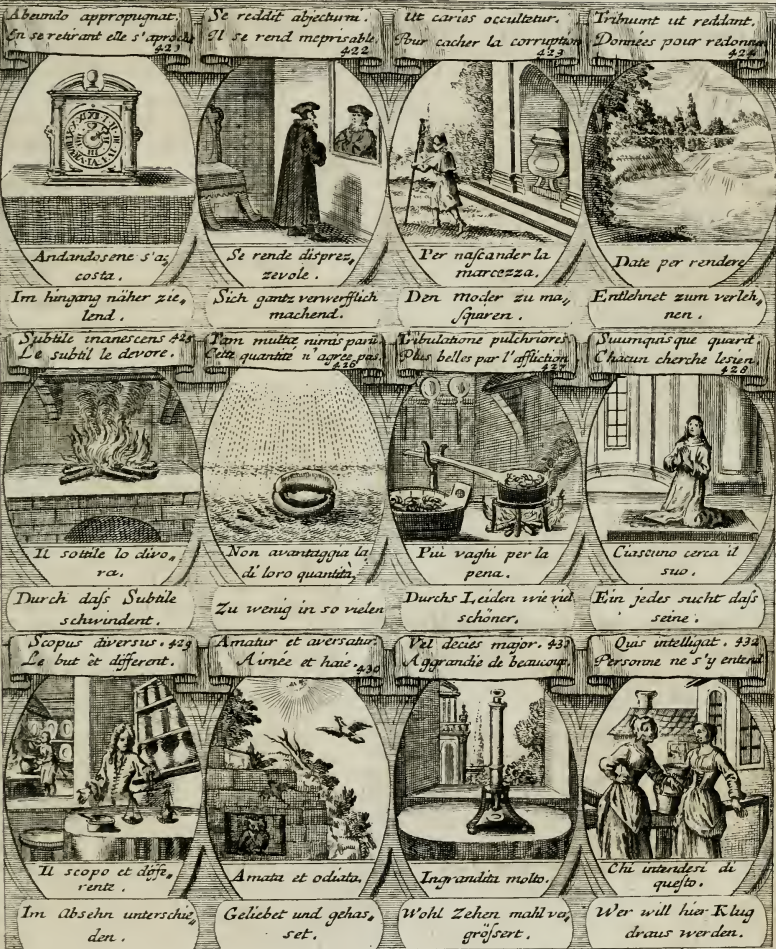 Abeundo appropugnat.
En se retirant elle s'aproche
421
Andandosene s'ac,
costa.
Im hingang näher zie,,
lend.
Se reddit abjectum.
Il se rend meprisable.
422
Se rende disprez,
zevole.
Sich gantz verwerfflich
machend.
Ut caries occultetur.
Pour cacher la corruption
423
Per nascander la
marcezza.
Den Moder zu ma,,
squaren.
Tribuunt ut reddant.
Données pour redonner
424
Date per rendere
Entlehnet zum verleh,,
nen.
Subtile inanescens 425
Le subtil le devore.
Il sottile lo divo,,
ra.
Durch dass Subtile
schwindent.
Tam multæ nimis parū.
Cette quantité n'agree pas.
426
Non avantaggia la
di loro quantità,
Zu wenig in so vielen
Tribulatione pulchriores
Plus belles par l'affliction
427
Più vaghi per la
pena.
Durchs Leiden wie viel
schöner.
Suumquisque quærit.
Chacun cherche lesien
428
Ciascuno cerca il
suo.
Ein jedes sucht dass
seine.
Scopus diversus. 429
Le but et different.
Il scopo et diffe,
rente.
Im Absehn unterschie,,
den.
Amatur et aversatur.
Aimée et haie.
430
Amata et odiata.
Geliebet und gehas,,
set.
Vel decies major. 431
Aggrandie de beaucoup.
Ingrandita molto.
Wohl Zehen mahl ver,
grössert.
Quis intelligat. 432
Personne ne s'y entend
Chi intendesi di
questo.
Wer will hier Klug
draus werden.